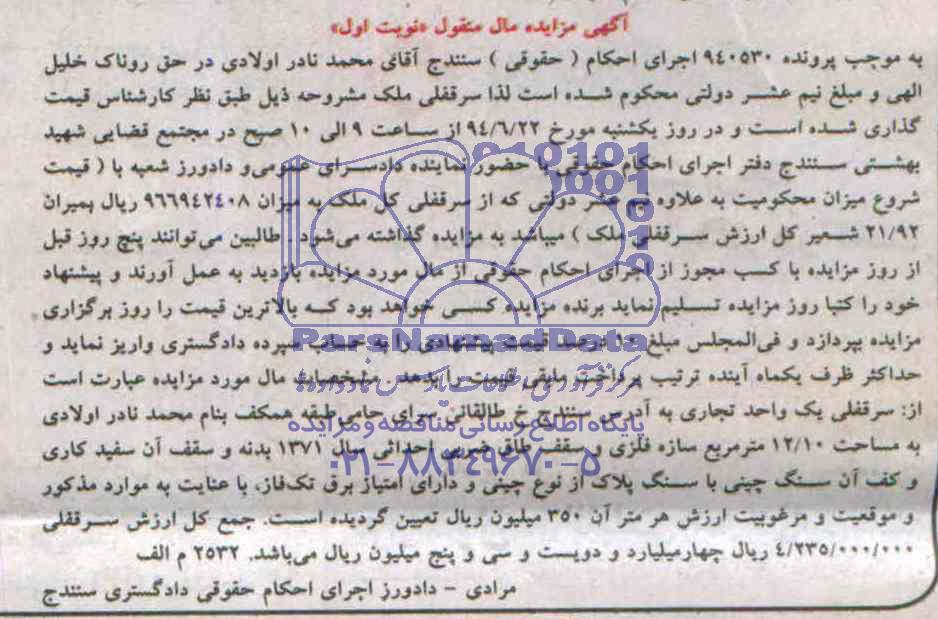 آگهی مزایده مال منقول «نوبت اول»
به موجب پرونده ۹۴۰۵۳۰ اجرای احکام ( حقوقی ) سنندج آقای محمد نادر اولادی در حق روناک خلیل
الهی و مبلغ نیم عشر دولتی محکوم شده است لذا سرقفلی ملک مشروحه ذیل طبق نظر کارشناس قیمت
گذاری شده است و در روز یکشنبه مورخ ۹۴/۶/۲۲ از ساعت ۹ الی ۱۰ صبح در مجتمع قضایی شهید
بهشتی سنندج دفتر اجرای احکام حقوقی با حضور نماینده دادسرای عمومی و دادورز شعبه با ( قیمت
شروع میزان محکومیت به علاوه نیم عشر دولتی که از سرقفلی کل ملک به میزان ۹۶۶۹۴۲۴۰۸ ریال بمیزان
۲۱/۹۲ شعیر کل ارزش سرقفلی ملک ) میباشد به مزایده گذاشته می‌شود. طالبین می‌توانند پنج روز قبل
از روز مزایده با کسب مجوز از اجرای احکام حقوقی از مال مورد مزایده بازدید به عمل آورند و پیشنهاد
خود را کتبا روز مزایده تسلیم نماید برنده مزایده کسی خواهد بود که بالاترین قیمت را روز برگزاری
مزایده بپردازد و فی‌المجلس مبلغ ۱۰ درصد قیمت پیشنهادی را به حساب سپرده دادگستری واریز نماید و
حداکثر ظرف یکماه آینده ترتیب پرداخت مابقی قیمت را بدهد. مشخصات مال مورد مزایده عبارت است
از: سرقفلی یک واحد تجاری به آدرس سنندج خ طالقانی سرای حامی طبقه همکف بنام محمد نادر اولادی
به مساحت ۱۲/۱۰ مترمربع سازه فلزی و سقف طاق ضربی احداثی سال ۱۳۷۱ بدنه و سقف آن سفید کاری
و کف آن سنگ چینی با سنگ پلاک از نوع چینی و دارای امتیاز برق تک‌فاز، با عنایت به موارد مذکور
و موقعیت و مرغوبیت ارزش هر متر آن ۳۵۰ میلیون ریال تعیین گردیده است. جمع کل ارزش سرقفلی
۴/۲۳۵/۰۰۰/۰۰۰ ریال چهارمیلیارد و دویست و سی و پنج میلیون ریال می‌باشد. ۲۵۳۲ م الف
مرادی - دادورز اجرای احکام حقوقی دادگستری سنندج
ParsNamadData
پایگاه اطلاع رسانی مناقصه و مزایده
۰۲۱-۸۸۳۴۹۶۷۰-۵